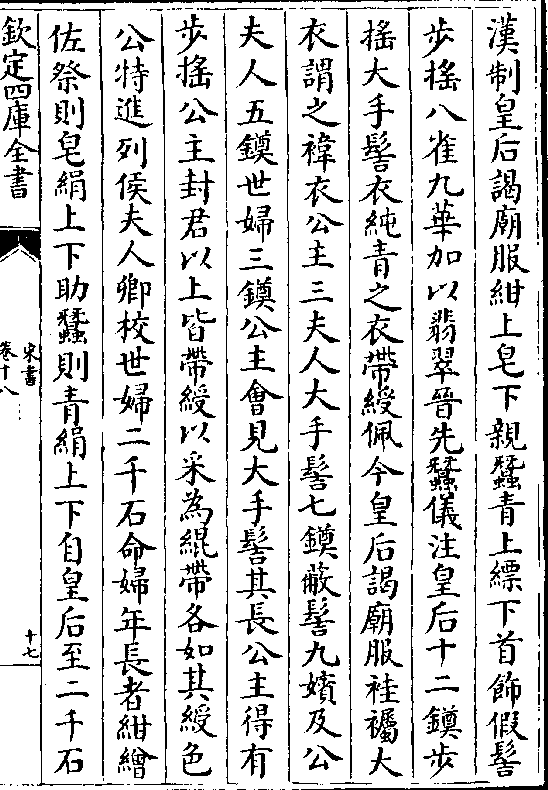 漢制皇后謁廟服紺上皂下親蠶青上縹下首飾假髻
步搖八雀九華加以翡翠晉先蠶儀注皇后十二鏌步
搖大手髻衣純青之衣帶綬佩今皇后謁廟服袿襡大
衣謂之褘衣公主三夫人大手髻七鏌蔽髻九嬪及公
夫人五鏌世婦三鏌公主會見大手髻其長公主得有
步搖公主封君以上皆帶綬以采為緄帶各如其綬色
公特進列侯夫人卿校世婦二千石命婦年長者紺繒
佐祭則皂絹上下助蠶則青絹上下自皇后至二千石
欽定四庫全書
宋書
卷十八
十七